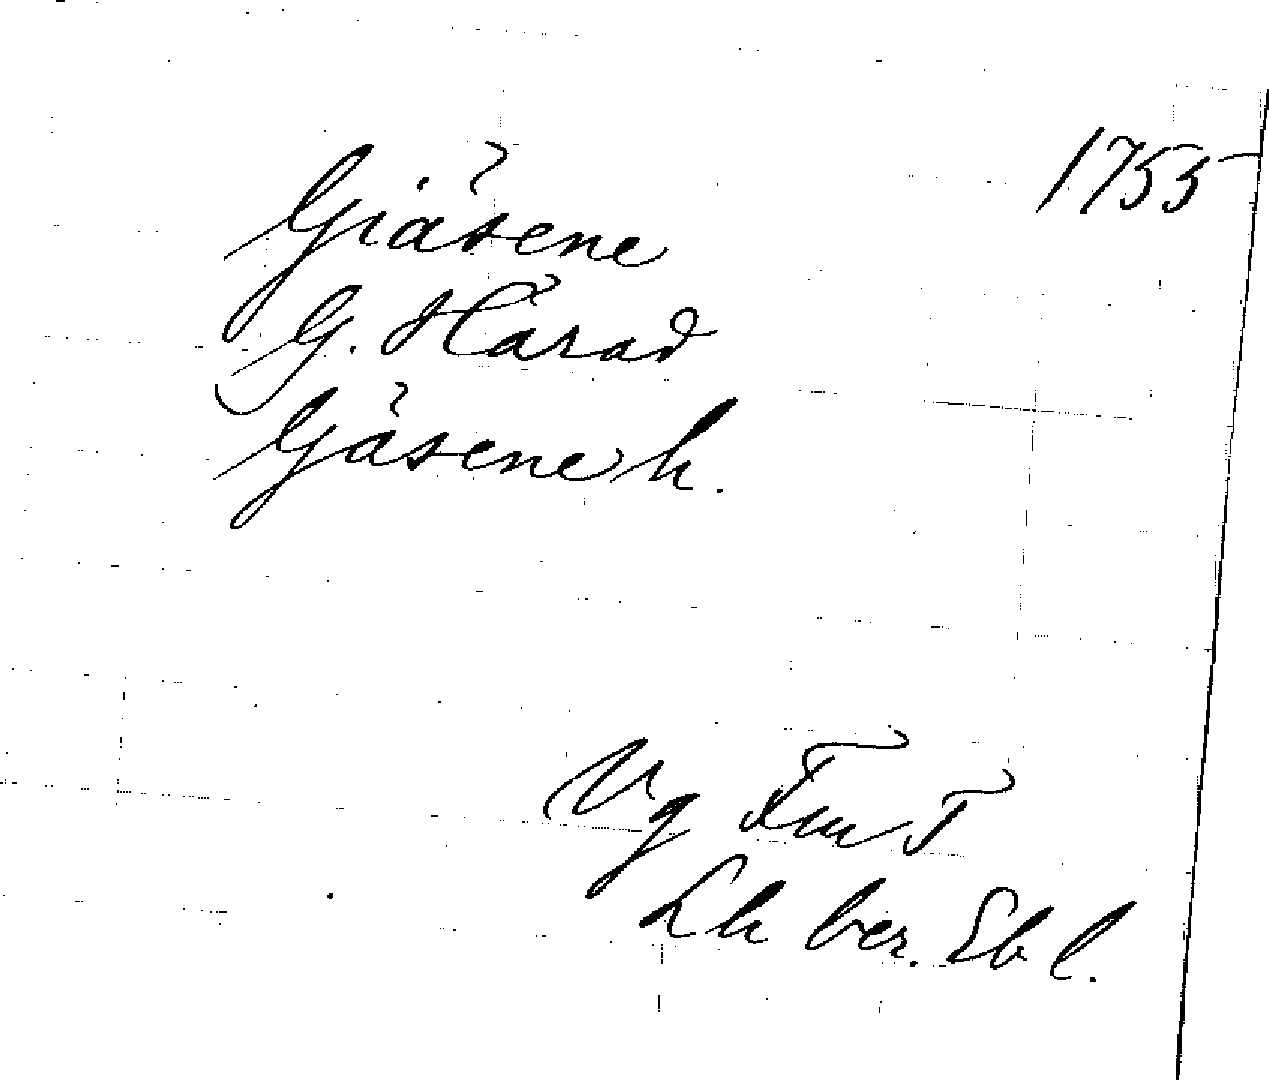 1755
Giäsene
G. Härad
Gäsene h.
Vg Fm T
Lh ber. Eb l.